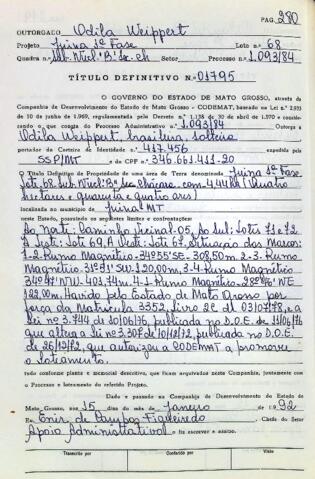 PAG. 280
OUTORGADO Odila Weippert
Projeto Juina 1ª Fase Lote n.º 68
Quadra n.º Sub. Nucl. "B" Se-Ch Setor Processo n.º 1.093/84
TÍTULO DEFINITIVO N.º 01795
O GOVERNO DO ESTADO DE MATO GROSSO, através da
Companhia de Desenvolvimento do Estado de Mato Grosso - CODEMAT, com base na Lei n.º 2.925
de 10 de junho de 1969, regulamentada pelo Decreto N.º 1.138 de 30 de abril de 1970 e considerando
o que consta do Processo Administrativo n.º 1.093/84 Outorga a
Odila Weippert, brasileira, solteira
portador da Carteira de Identidade n.º 417.456 expedida pela
SSP/MT e do CPF n.º 346.661.411-20
O Título Definitivo de Propriedade de uma área de Terra denominada Juina 1ª Fase
Lote 68 sub. Nucl. "B" Se Chácara com 4,44ha (Quatro
hectares e quarenta e quatro ares)
localizada no município de Juina MT
neste Estado, passando os seguintes limites e confrontações:
Ao norte: Caminho Vicinal 05, ao sul: Lotes 71 e 72
A Leste: Lote 69, A Oeste: Lote 67. Situação dos Marcos:
1-2 Rumo Magnético 34º55'SE - 308,50m 2-3 Rumo
Magnético 31º91'SW - 120,00m, 3-4 Rumo Magnético
NW - 403,74m 4-1 Rumo Magnético NE
122,00m. Havido pelo Estado de Mato Grosso por
força da Matrícula 3352, livro 2E de 03/07/78, e a
Lei nº 3.744 de 10/06/76, publicada no D.O.E. de 11/06/76
que altera a Lei nº 3.307 de 10/12/72, publicada no D.O.E.
de 26/12/72, que autorizou a CODEMAT a promover
o loteamento.
tudo conforme planta e memorial descritivo, que ficam arquivados nesta Companhia, juntamente com
o Processo e loteamento do referido Projeto.
Dado e passado na Companhia de Desenvolvimento do Estado de
Mato Grosso, aos 15 dias do mês de Janeiro de 1992
Eu Enir de Campos Figueiredo Chefe do Setor
Apoio Administrativo o fiz escrever e assino.
Transcrito por Conferido por Visto